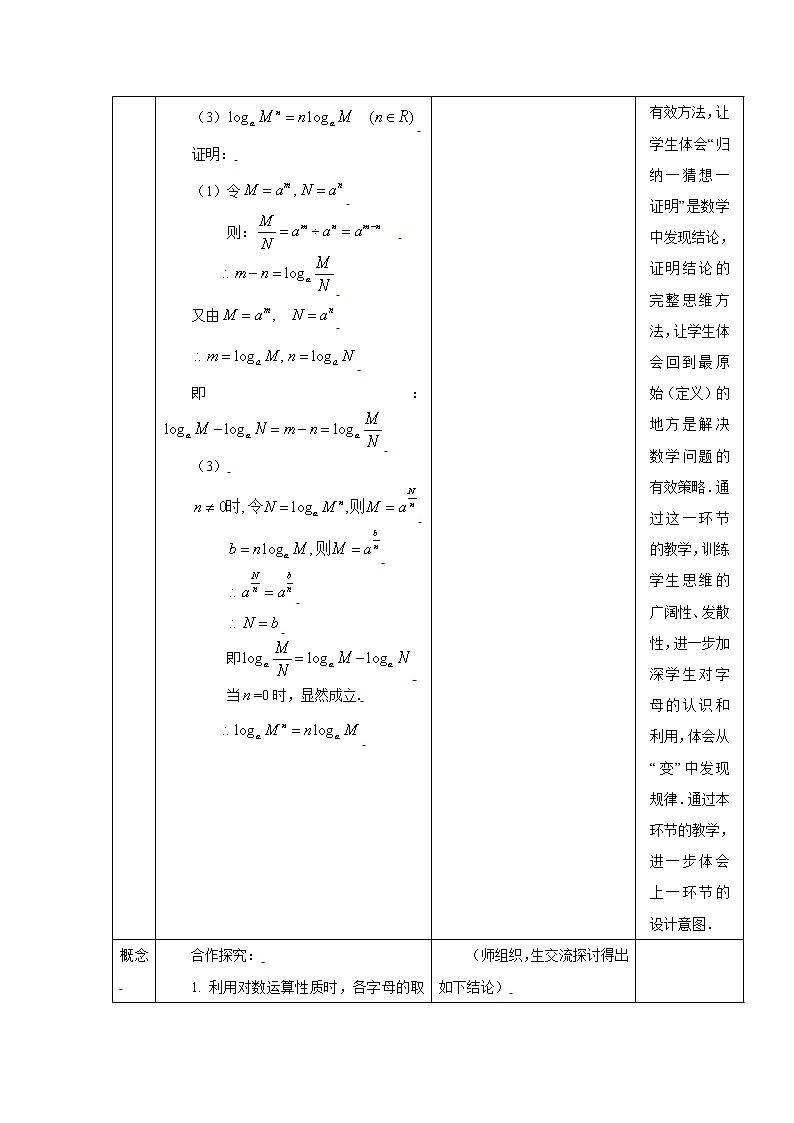 （3）logₐ Mⁿ = n logₐ M （n ∈ R）
证明：
（1）令 M = aᵐ , N = aⁿ
则：M/N = aᵐ ÷ aⁿ = aᵐ⁻ⁿ
∴ m − n = logₐ M/N
又由 M = aᵐ, N = aⁿ
∴ m = logₐ M , n = logₐ N
即 ：
logₐ M − logₐ N = m − n = logₐ M/N
（3）
n ≠ 0时, 令N = logₐ Mⁿ ,则M = a^(N/n)
b = n logₐ M , 则M = a^(b/n)
∴ a^(N/n) = a^(b/n)
∴ N = b
即logₐ M/N = logₐ M − logₐ N
当 n =0 时，显然成立.
∴ logₐ Mⁿ = n logₐ M
有效方法,让
学生体会“归
纳一猜想一
证明”是数学
中发现结论,
证明结论的
完整思维方
法,让学生体
会回到最原
始(定义)的
地方是解决
数学问题的
有效策略.通
过这一环节
的教学,训练
学生思维的
广阔性、发散
性,进一步加
深学生对字
母的认识和
利用,体会从
“变”中发现
规律.通过本
环节的教学,
进一步体会
上一环节的
设计意图.
概念
合作探究：
1. 利用对数运算性质时，各字母的取
（师组织,生交流探讨得出
如下结论）